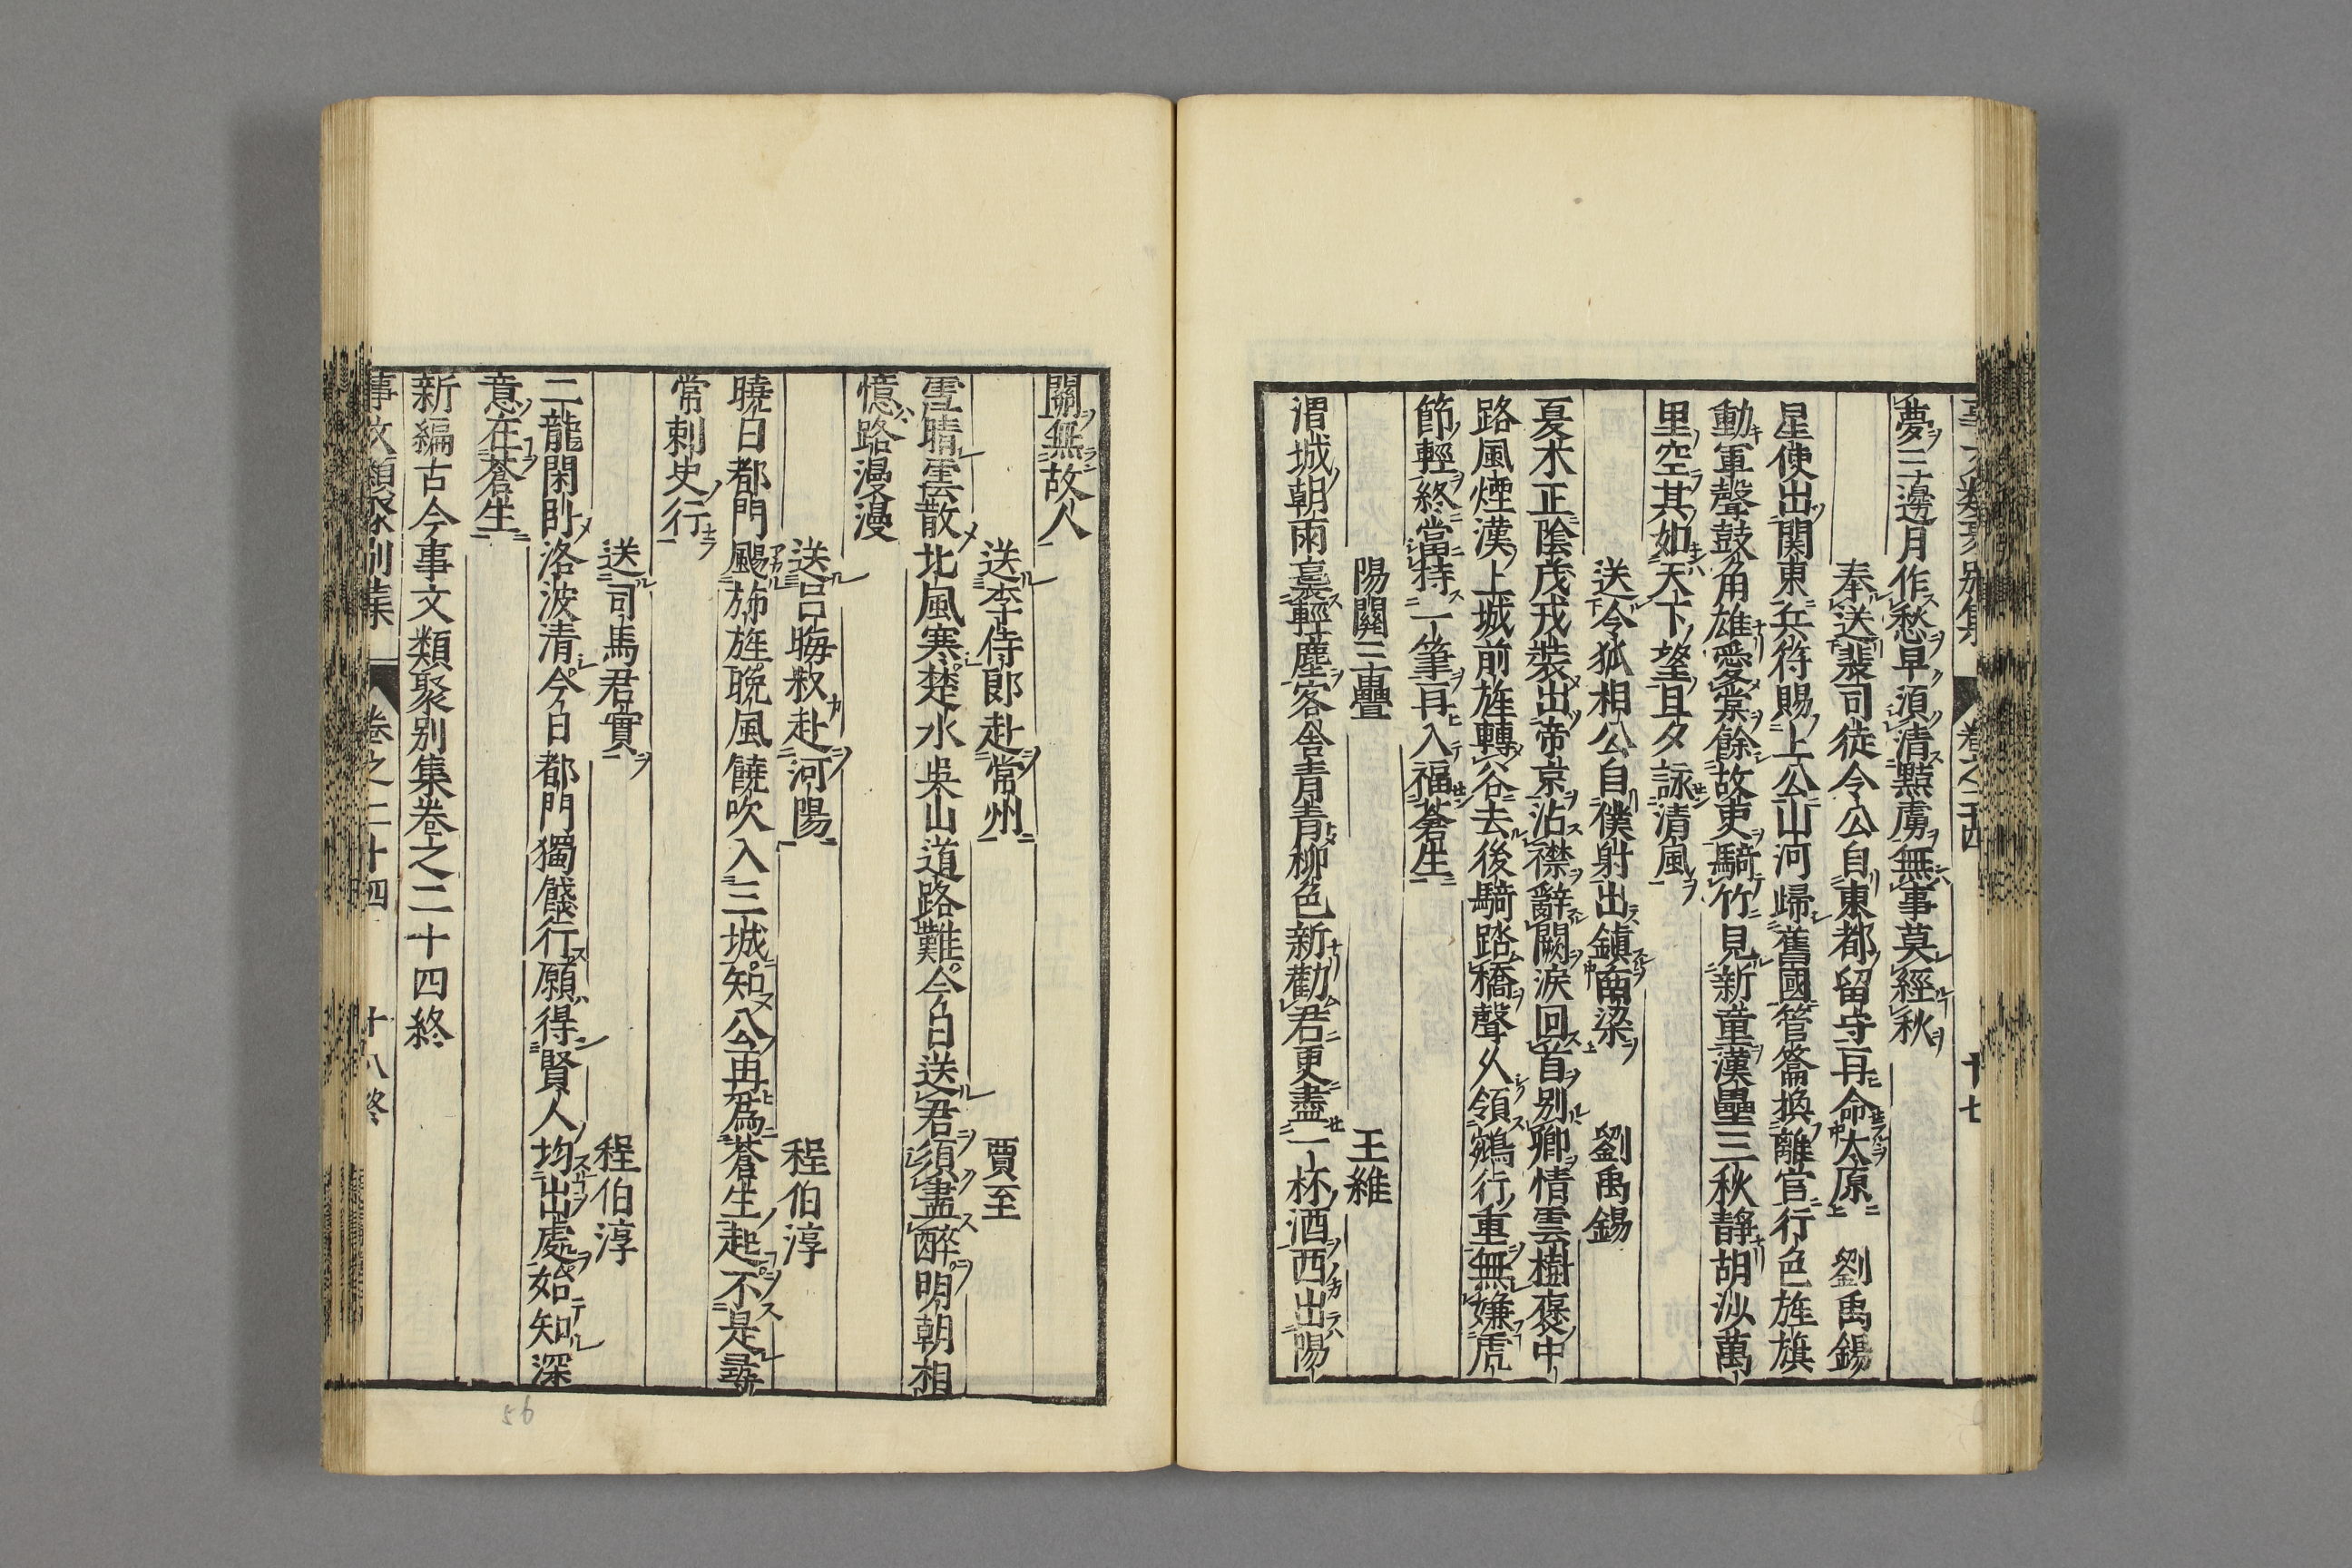 夢三邊月作愁早須清黠虜無事莫經秋
奉送裴司徒令公自東都留守再命太原　劉禹錫
星使出關東兵符賜上公山河歸舊國管籥換離宮行色旌旗
動軍聲鼓角雄愛棠餘故吏騎竹見新童漢壘三秋靜胡沙萬
里空其如天下望旦夕詠清風
送令狐相公自僕射出鎮南梁　劉禹錫
夏木正陰茂戎裝出帝京沾襟辭闕淚回首別卿情雲樹褒中
路風煙漢上城前旌轉谷去後騎踏橋聲久領鵷行重無嫌虎
節輕終當持一筆再入福蒼生
陽關三疊　王維
渭城朝雨裛輕塵客舍青青柳色新勸君更盡一杯酒西出陽
關無故人
送李侍郎赴常州　賈至
雪晴雲散北風寒楚水吳山道路難今日送君須盡醉明朝相
憶路漫漫
送呂晦叔赴河陽　程伯淳
曉日都門颺旆旌晩風饒吹入三城知公再爲蒼生起不是尋
常刺史行
送司馬君實　程伯淳
二龍閑卧洛波清今日都門獨餞行願得賢人均出處始知深
意在蒼生
新編古今事文類聚別集卷之二十四終
事文類聚別集　卷之二十四　十八終